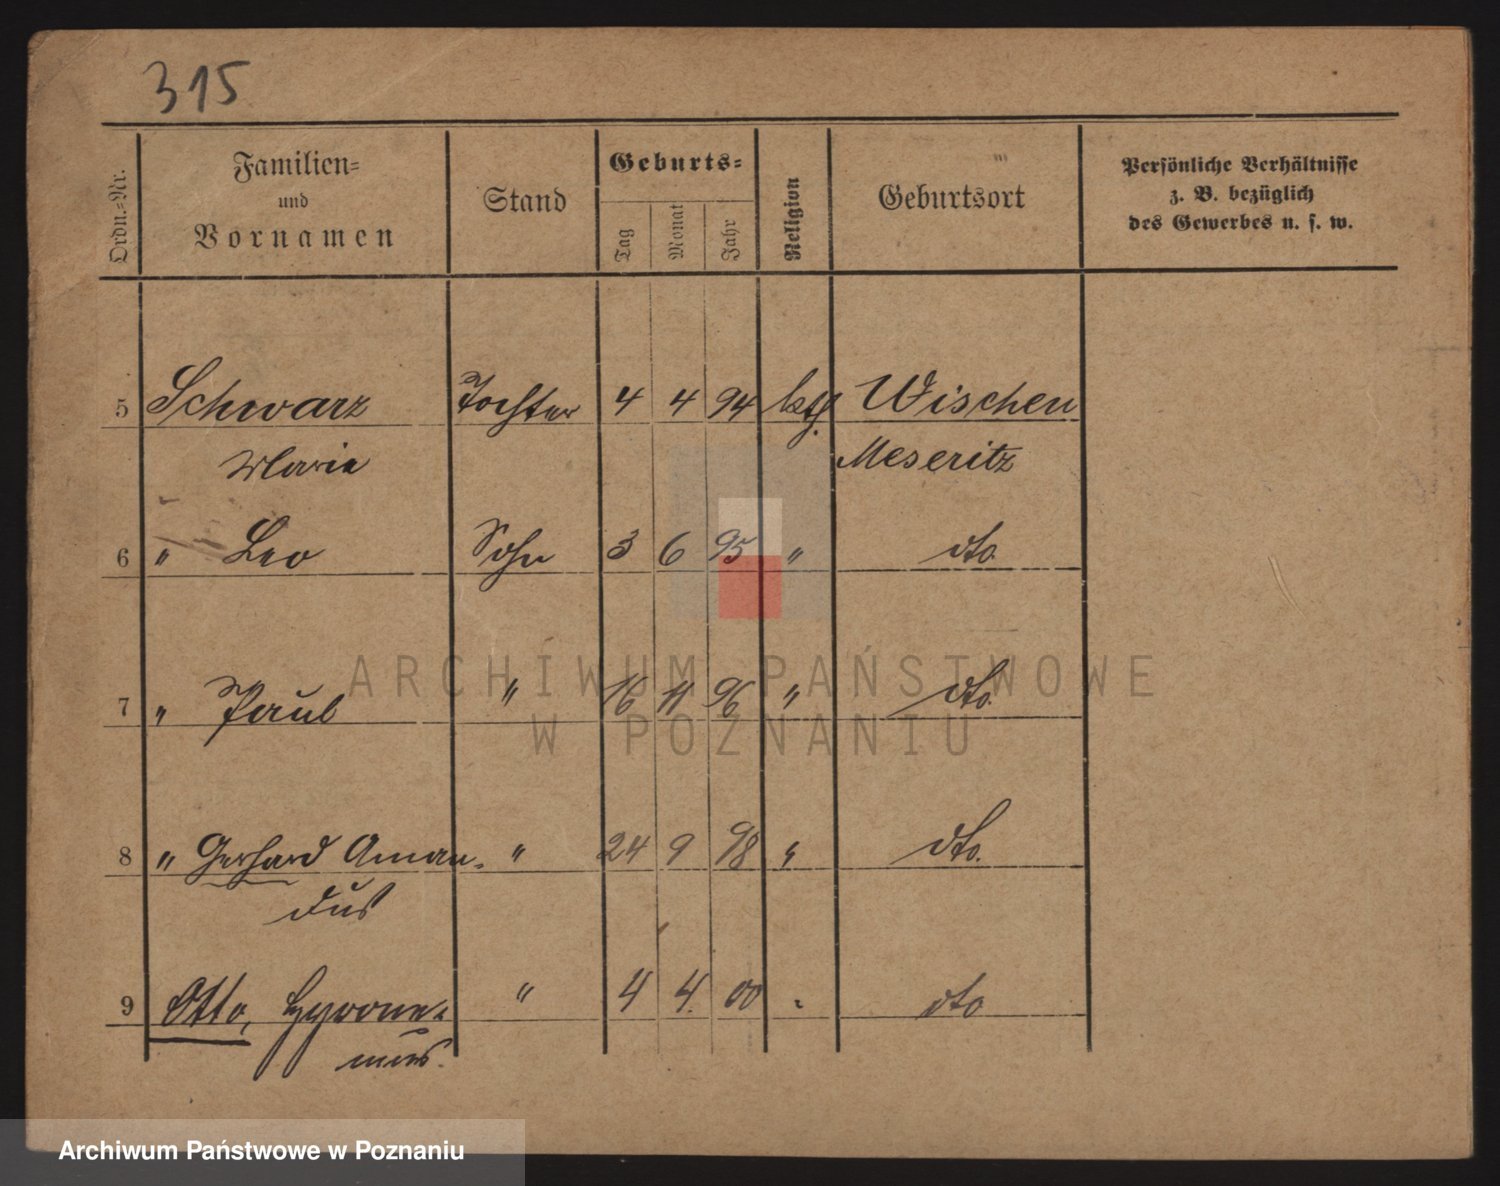 315
Ordn.-Nr.
Familien-
und
Vornamen
Stand
Geburts-
Tag
Monat
Jahr
Religion
Geburtsort
Persönliche Verhältnisse
z. B. bezüglich
des Gewerbes u. s. w.
5 Schwarz Tochter 4 4 94 kth. Wischen
Marie Meseritz
6 " Leo Sohn 3 6 95 " dto.
7 " Paul " 16 11 96 " dto.
8 " Gerhard Aman- " 24 9 98 " dto.
dus
9 Otto, Hyrone- " 4 4. 00 " dto
mus.
ARCHIWUM PAŃSTWOWE
W POZNANIU
Archiwum Państwowe w Poznaniu